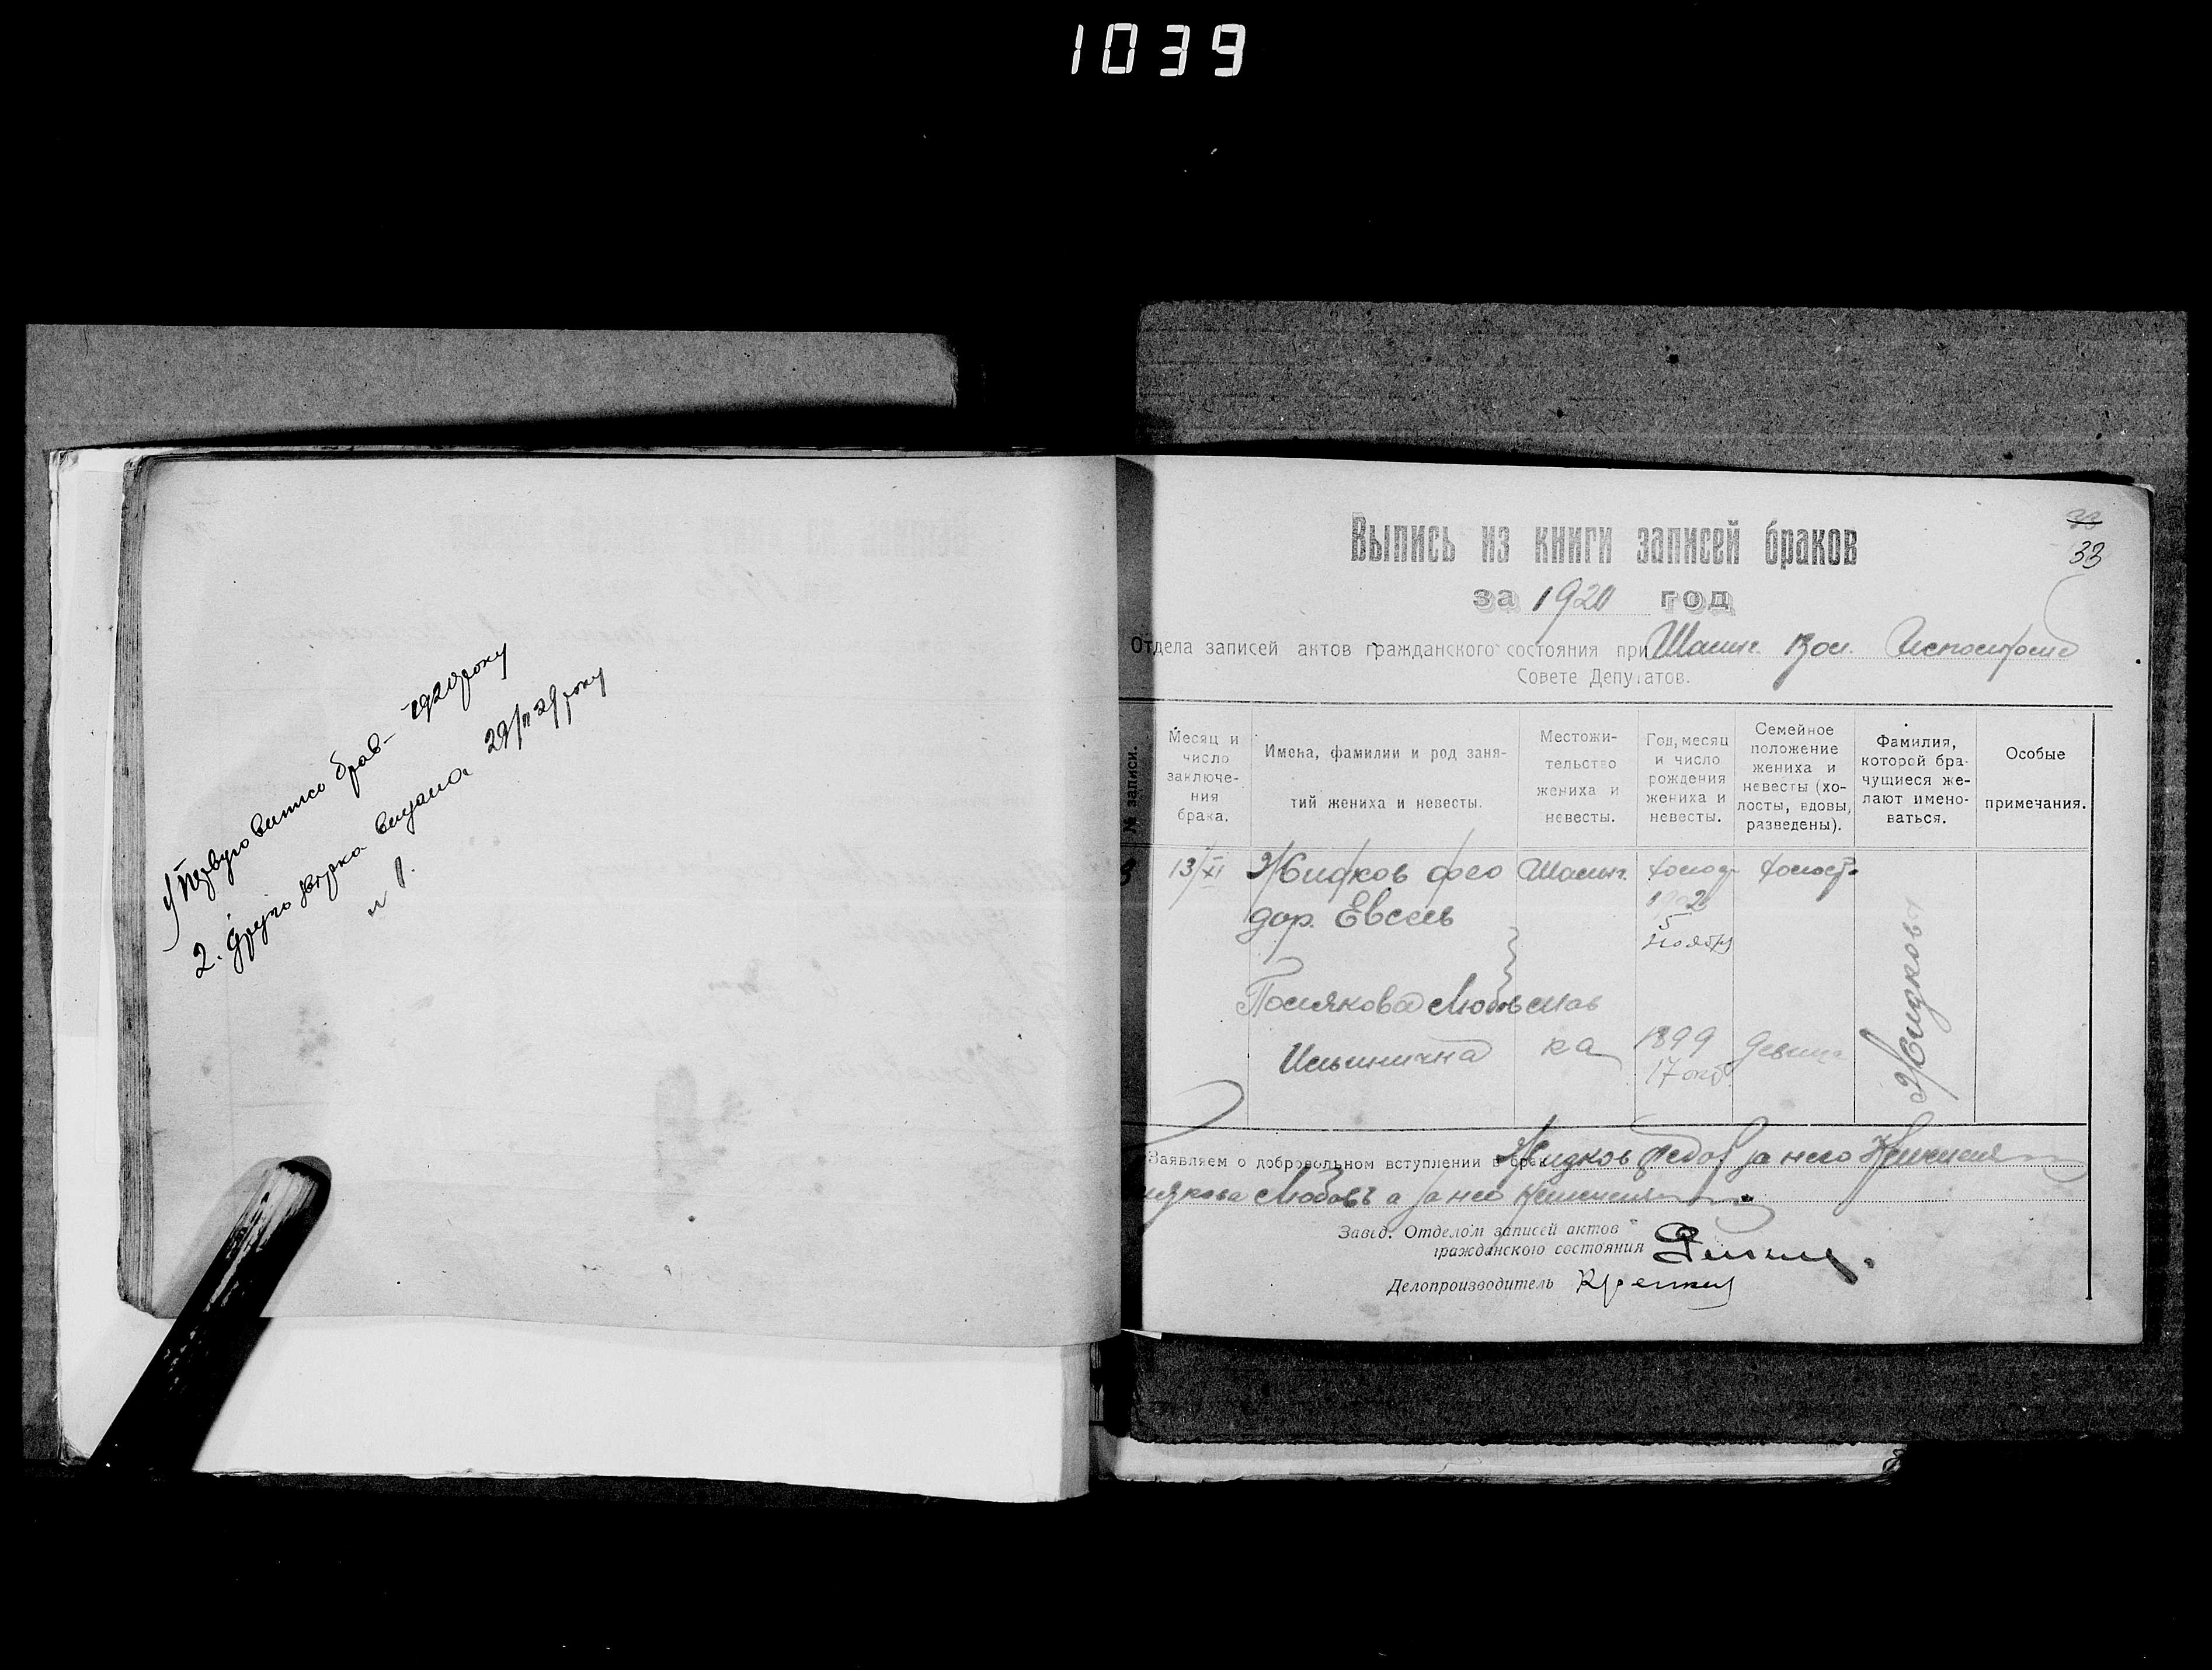 1039
1) Першу виписю брав – 1920 року
2. Другу видана 29/ 29 року
Выпись из книги записей браков
33
за 1920 год
Отдела записей актов гражданского состояния при Вол. Исполкоме
Совете Депутатов.
№ записи.
Месяц и число заключения брака.
Имена, фамилии и род занятий жениха и невесты.
Местожительство жениха и невесты.
Год, месяц и число рождения жениха и невесты.
Семейное положение жениха и невесты (холосты, вдовы, разведены).
Фамилия, которой брачущиеся желают именоваться.
Особые примечания.
3 13/XI Жидков Фео Холост
дор. Евсеев 1902
5 ноября
Полякова Любовь
Ильинична ка 1899 девица
17 окт
Жидковы
Заявляем о добровольном вступлении в брак Жидков Федор за него
Любовь а за нее
Завед. Отделом записей актов
гражданского состояния
Делопроизводитель